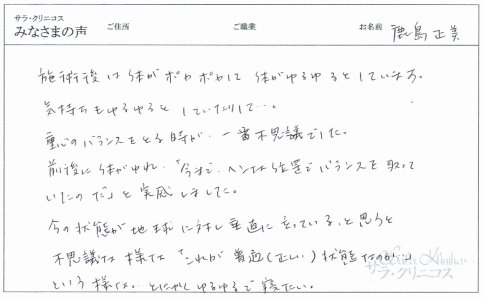 サラ・クリニコス
みなさまの声 ご住所 ご職業 お名前 鹿島正美
施術後は体がポカポカして 体がゆるゆるとしています。
気持ちもゆるゆると していたりして…。
重心のバランスをとる時が、一番不思議でした。
前後に体がゆれ、「今まで、ヘンな位置でバランスを取って
いたのだ」と実感しました。
今の状態が地球に対し垂直に立っている、と思うと
不思議な様な「これが普通(正しい)状態なのか」
という様な、とにかくゆるゆるで寝たい。
サラ・クリニコス